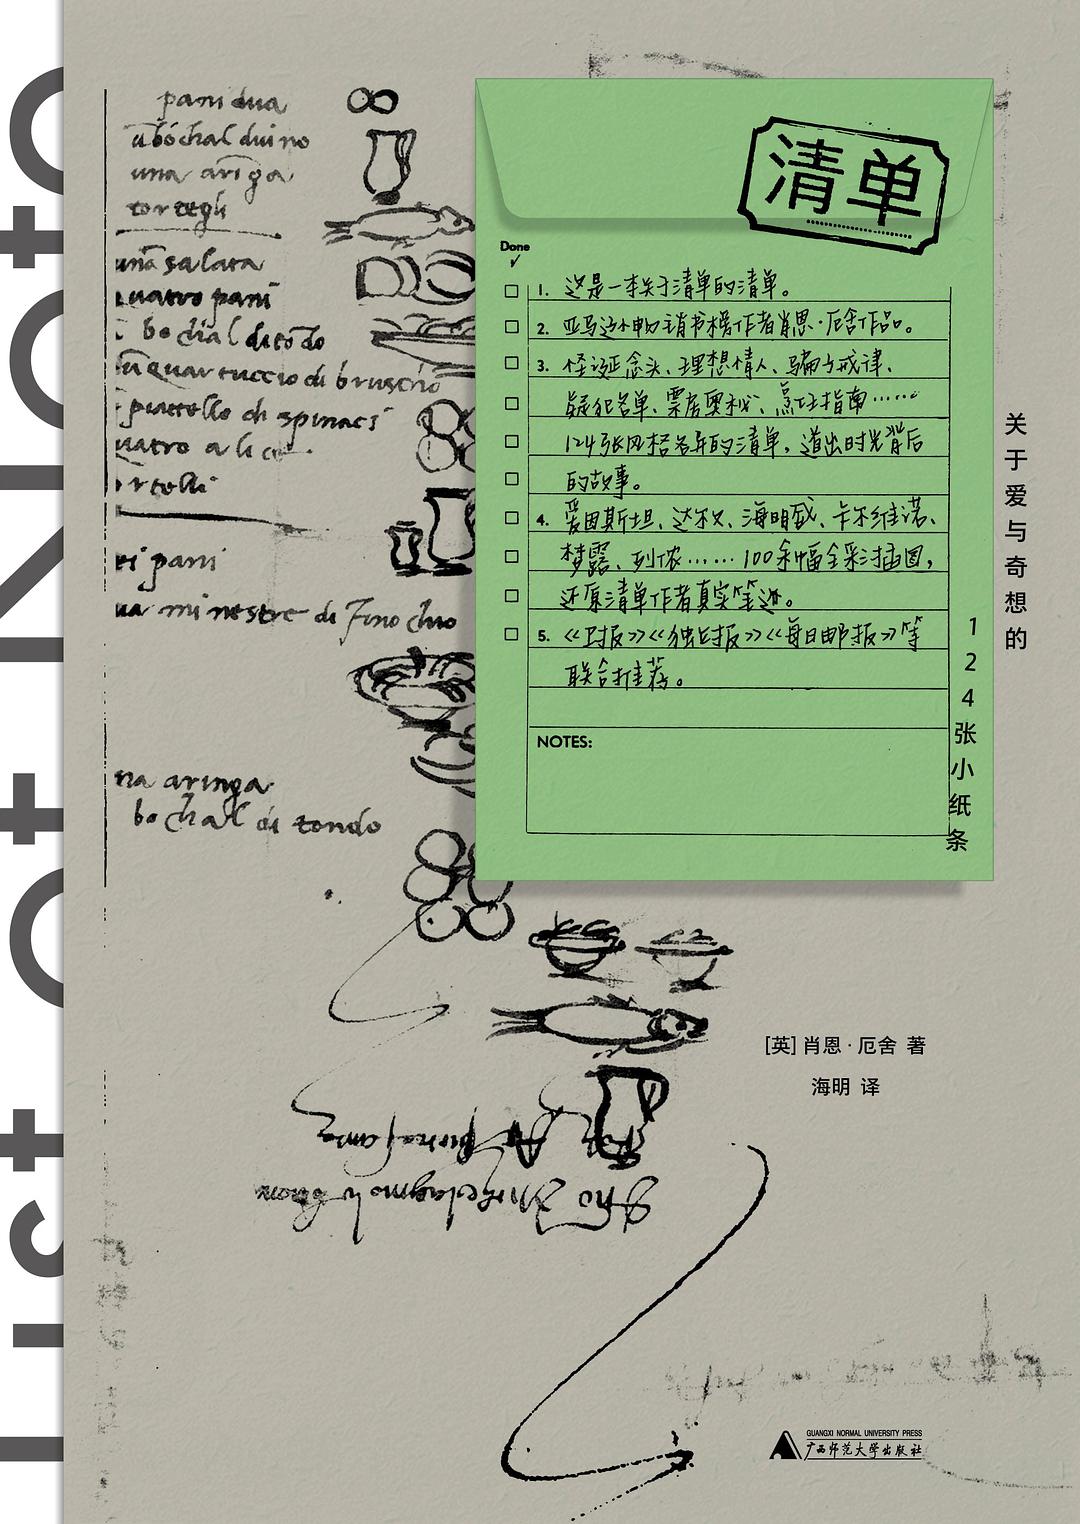 pani dua
una aringa
tortegli
una salata
quatro pani
bochal di tōdo
un quartuccio di bruschio
piattello di spinaci
quatro alice
ortelli
ei pani
ua minestre di finochio
na aringa
bochal di tondo
清单
Done
1. 这是一本关于清单的清单。
2. 亚马逊网热销书榜作者肖恩·厄舍作品。
3. 怪诞念头、理想情人、骗子戒律、
疑犯名单、票房奥秘、烹饪指南……
124张风格各异的清单,道出时光背后
的故事。
4. 爱因斯坦、达尔文、海明威、卡尔维诺、
梦露、列侬……100余幅全彩插图,
还原清单作者真实笔迹。
5. 《卫报》《独立报》《每日邮报》等
联合推荐。
NOTES:
关于爱与奇想的
124张小纸条
[英] 肖恩·厄舍 著
海明 译
GUANGXI NORMAL UNIVERSITY PRESS
广西师范大学出版社